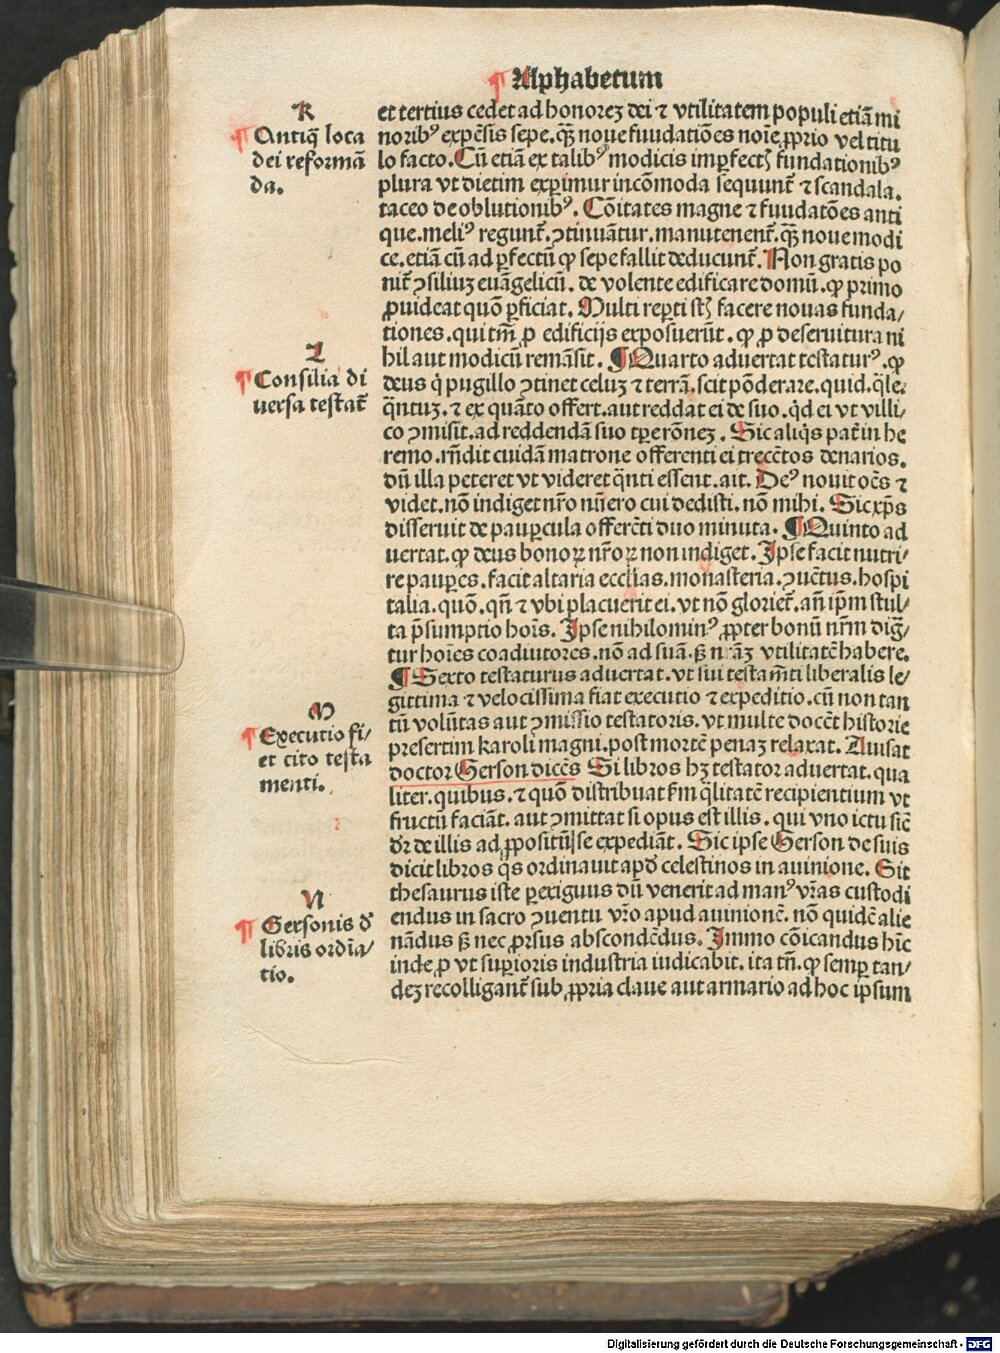 ¶ Alphabetum
K
¶ Antiq̃ loca
dei reformã
da.
et tertius cedet ad honorez dei ⁊ vtilitatem populi etiã mi
norib⁹ expẽsis sepe. q̃ʒ noue fuudatiões noĩe ꝓprio vel titu
lo facto. Cũ etiã ex talib⁹ modicis imꝑfectꝭ fundationib⁹
plura vt dietim exꝑimur incõmoda sequunt̃ ⁊ scandala.
taceo de oblutionib⁹. Cõitates magne ⁊ fuudatões anti
que. meli⁹ regunt̃. ꝯtinuãtur. manutenent̃. q̃ʒ noue modi
ce. etiã cũ ad ꝑfectũ ꝙ sepe fallit deducunt̃. Non gratis po
nit̃ ꝯsiliuʒ euãgelicũ. de volente edificare domũ. ꝙ primo
ꝓuideat quõ ꝑficiat. Multi reꝑti st̃ facere nouas funda/
tiones. qui tm̃ ꝓ edificijs exposuerũt. ꝙ ꝓ deseruitura ni
hil aut modicũ remãsit. ¶ Quarto aduertat testatur⁹. ꝙ
L
¶ Consilia di
uersa testat̃
deus q̇ pugillo ꝯtinet celuʒ ⁊ terrã. scit põderare. quid. q̃le.
q̃ntuʒ. ⁊ ex quãto offert. aut reddat ei de suo. q̇d ei vt villi/
co ꝯmisit. ad reddendã suo tꝑe rõneʒ. Sic aliq̇s pat̃ in he
remo. rñdit cuidã matrone offerenti ei trecẽtos denarios.
dũ illa peteret vt videret q̃nti essent. ait. De⁹ nouit oẽs ⁊
videt. nõ indiget nr̃o nũero cui dedisti. nõ mihi. Sic xp̃s
disseruit de pauꝑcula offerẽti duo minuta. ¶ Quinto ad
uertat. ꝙ deus bonoꝝ nr̃oꝝ non indiget. Ipse facit nutri/
re pauꝑes. facit altaria ecclĩas. monasteria. ꝯuẽtus. hospi
talia. quõ. qñ ⁊ vbi placuerit ei. vt nõ gloriet̃. añ ip̃m stul/
ta p̃sumptio hoĩs. Ipse nihilomin⁹ ꝓpter bonũ nr̃m dig̃/
tur hoĩes coadiutores. nõ ad suã. sʒ nr̃aʒ vtilitatẽ habere.
¶ Sexto testaturus aduertat. vt sui testam̃ti liberalis le/
gittima ⁊ velocissima fiat executio ⁊ expeditio. cũ non tan
M
¶ Executio fi/
et cito testa
menti.
tũ volũtas aut ꝯmissio testatoris. vt multe docẽt historie
presertim karoli magni. post mortẽ penaʒ relaxat. Auisat
doctor Gerson dicẽs Si libros hʒ testator aduertat. qua
liter. quibus. ⁊ quõ distribuat ẜm q̃litatẽ recipientium vt
fructũ faciãt. aut ꝯmittat si opus est illis. qui vno ictu sic̃
dr̃ de illis ad ꝓpositũ se expediãt. Sic ipse Gerson de suis
dicit libros q̃s ordinauit apd̃ celestinos in auinione. Sit
N
¶ Gersonis d̃
libris ordĩa/
tio.
thesaurus iste ꝑexiguus dũ venerit ad man⁹ vr̃as custodi
endus in sacro ꝯuentu vr̃o apud auinionẽ. nõ quidẽ alie
nãdus sʒ nec ꝓrsus abscondẽdus. Immo cõicandus hĩc
inde ꝓ vt suꝑioris industria iudicabit. ita tñ. ꝙ semꝑ tan/
deʒ recolligant̃ sub ꝓpria claue aut armario ad hoc ipsum
Digitalisierung gefördert durch die Deutsche Forschungsgemeinschaft - DFG